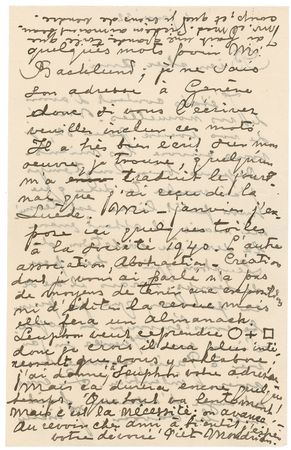 quelques mots pour Mr
Backlund, je ne sais
son adresse à Genève
donc si vous l'écrivez
veuillez inclure ces mots
Il a très bien écrit sur mon
oeuvre, je trouve, quelqu'un
m'a traduit le jour-
nal que j'ai reçu de la
Suède. Mi-janvier j'ex-
pose ici quelques toiles
à la Société 1940. L'autre
association, Abstraction-Création
dont je vous ai parlé n'a pas
de moyen de tenir une exposition
ni d'éditer la revue mais
elle fera un almanach.
Seuphor veut reprendre ○ + □
donc je crois il sera plus inté-
ressant que vous y collaborez
j'ai donné Seuphor votre adresse
Mais ça durera encore quelque
temps. Que tout va lentement!
Mais c'est la nécessité: on avance.
Au revoir cher ami, à bientôt j'espère
votre dévoué Piet Mondrian.